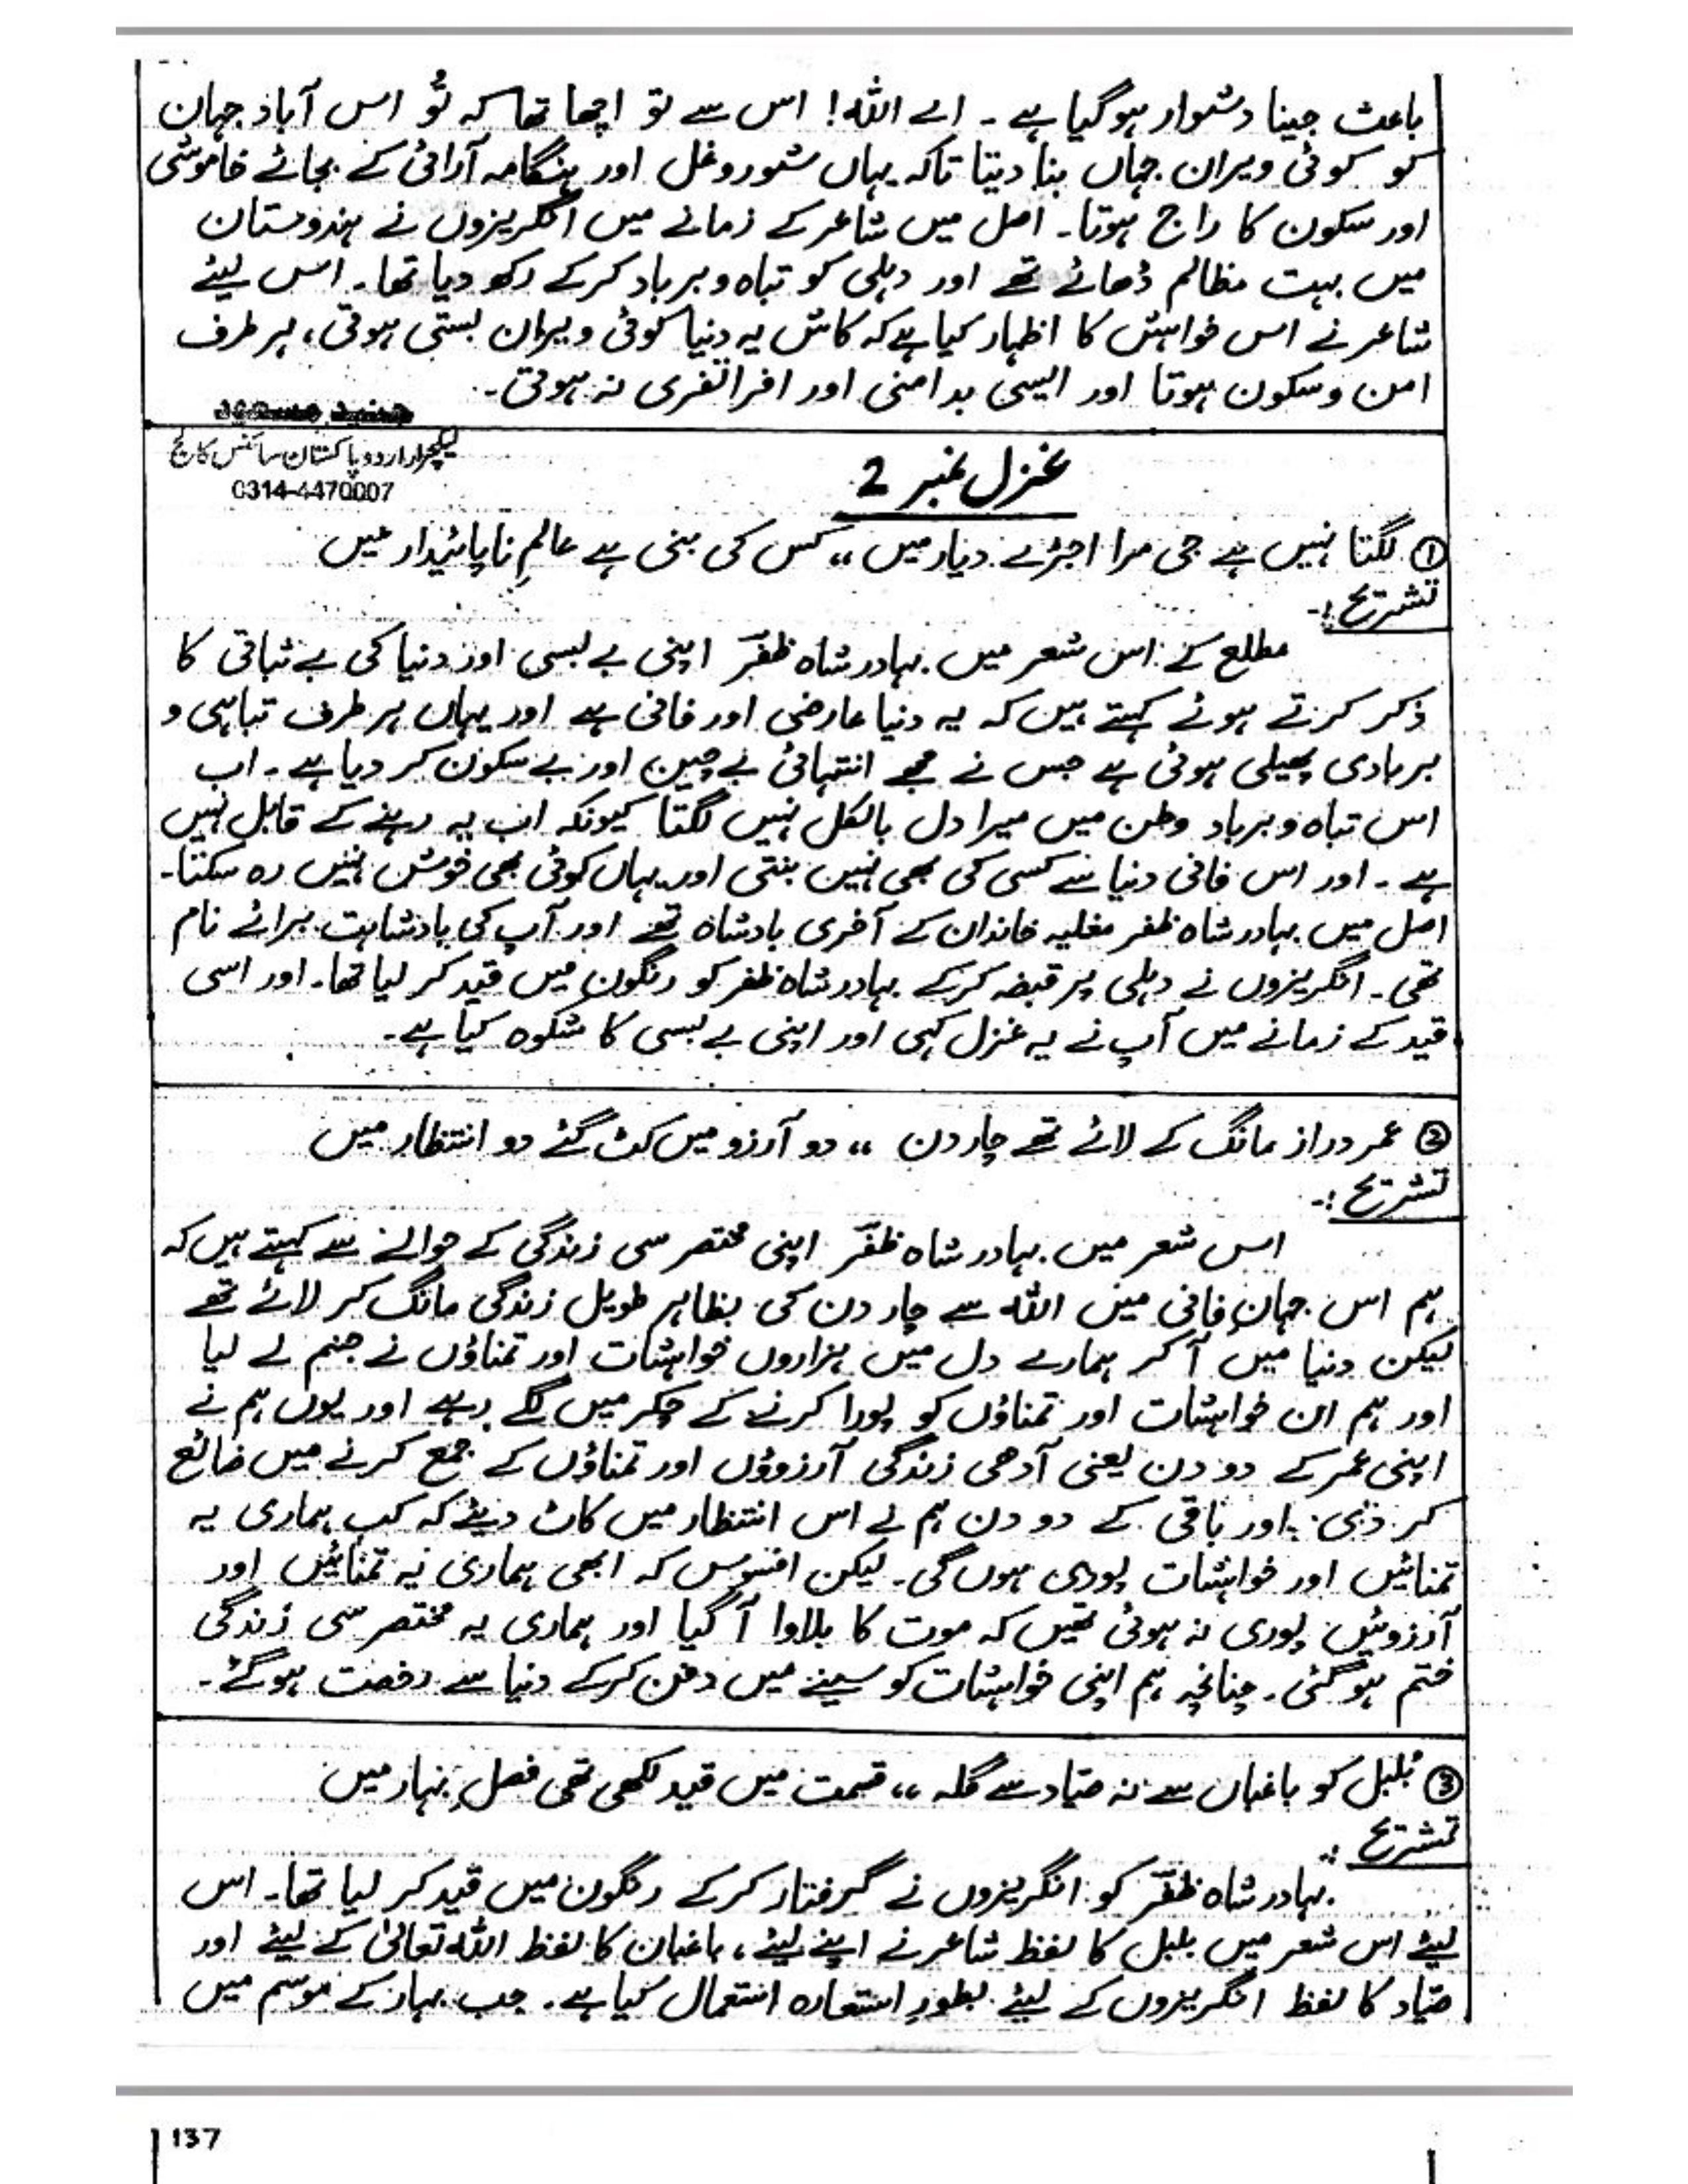 باعث جینا دشوار ہوگیا ہے ۔ اے اللہ! اس سے تو اچھا تھا کہ تُو اس آباد جہان
کو کوئی ویران جہاں بنا دیتا تاکہ یہاں شوروغل اور ہنگامہ آرائی کے بجائے خاموشی
اور سکون کا راج ہوتا۔ اصل میں شاعر کے زمانے میں انگریزوں نے ہندوستان
میں بہت مظالم ڈھائے تھے اور دہلی کو تباہ و برباد کرکے رکھ دیا تھا۔ اس لیئے
شاعر نے اس خواہش کا اظہار کیا ہے کہ کاش یہ دنیا کوئی ویران بستی ہوتی، ہر طرف
امن و سکون ہوتا اور ایسی بدامنی اور افراتفری نہ ہوتی۔
لیکچرار اردو پاکستان سائنس کالج
0314-4470007
غزل نمبر 2
① لگتا نہیں ہے جی مرا اجڑے دیار میں ،، کس کی بنی ہے عالمِ ناپائیدار میں
تشریح :۔
مطلع کے اس شعر میں بہادر شاہ ظفرؔ اپنی بے بسی اور دنیا کی بے ثباتی کا
ذکر کرتے ہوئے کہتے ہیں کہ یہ دنیا عارضی اور فانی ہے اور یہاں ہر طرف تباہی و
بربادی پھیلی ہوئی ہے جس نے مجھے انتہائی بے چین اور بے سکون کر دیا ہے ۔ اب
اس تباہ و برباد وطن میں میرا دل بالکل نہیں لگتا کیونکہ اب یہ رہنے کے قابل نہیں
ہے ۔ اور اس فانی دنیا سے کسی کی بھی نہیں بنتی اور یہاں کوئی بھی خوش نہیں رہ سکتا۔
اصل میں بہادر شاہ ظفر مغلیہ خاندان کے آخری بادشاہ تھے اور آپ کی بادشاہت برائے نام
تھی ۔ انگریزوں نے دہلی پر قبضہ کرکے بہادر شاہ ظفر کو رنگون میں قید کر لیا تھا۔ اور اسی
قید کے زمانے میں آپ نے یہ غزل کہی اور اپنی بے بسی کا شکوہ کیا ہے۔
② عمر دراز مانگ کے لائے تھے چار دن ،، دو آرزو میں کٹ گئے دو انتظار میں
تشریح :۔
اس شعر میں بہادر شاہ ظفرؔ اپنی مختصر سی زندگی کے حوالے سے کہتے ہیں کہ
ہم اس جہانِ فانی میں اللہ سے چار دن کی بظاہر طویل زندگی مانگ کر لائے تھے
لیکن دنیا میں آ کر ہمارے دل میں ہزاروں خواہشات اور تمناؤں نے جنم لے لیا
اور ہم ان خواہشات اور تمناؤں کو پورا کرنے کے چکر میں لگے رہے اور یوں ہم نے
اپنی عمر کے دو دن یعنی آدھی زندگی آرزوؤں اور تمناؤں کے جمع کرنے میں ضائع
کر دی اور باقی کے دو دن ہم نے اس انتظار میں کاٹ دیئے کہ کب ہماری یہ
تمنائیں اور خواہشات پوری ہوں گی۔ لیکن افسوس کہ ابھی ہماری یہ تمنائیں اور
آرزوئیں پوری نہ ہوئی تھیں کہ موت کا بلاوا آ گیا اور ہماری یہ مختصر سی زندگی
ختم ہو گئی ۔ چنانچہ ہم اپنی خواہشات کو سینے میں دفن کرکے دنیا سے رخصت ہو گئے۔
③ بُلبل کو باغباں سے نہ صیّاد سے گلہ ،، قسمت میں قید لکھی تھی فصلِ بہار میں
تشریح :۔
بہادر شاہ ظفرؔ کو انگریزوں نے گرفتار کرکے رنگون میں قید کر لیا تھا۔ اس
لیئے اس شعر میں بلبل کا لفظ شاعر نے اپنے لیئے ، باغبان کا لفظ اللہ تعالیٰ کے لیئے اور
صیّاد کا لفظ انگریزوں کے لیئے بطورِ استعارہ استعمال کیا ہے۔ جب بہار کے موسم میں
137